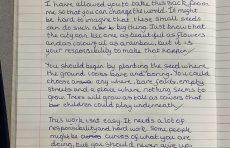 I have allowed you to take this back from
me, so that you can change the world. It might
be hard to imagine that these small seeds
can do such a big thing. Just know that
the city can become as beautiful as flowers
and as colourful as a rainbow, but it is
your responsibility to make that happen.
You should begin by planting the seed where
the ground looks bare and boring. You could
choose any where, bare fields, empty
streets and a place where nothing seems to
grow. Trees will grow as tall as towers that
children could play underneath.
This work isnt easy. It needs a lot of
responsibility and hard work. Some people
might be curious of what you are
doing, but you should never give up.